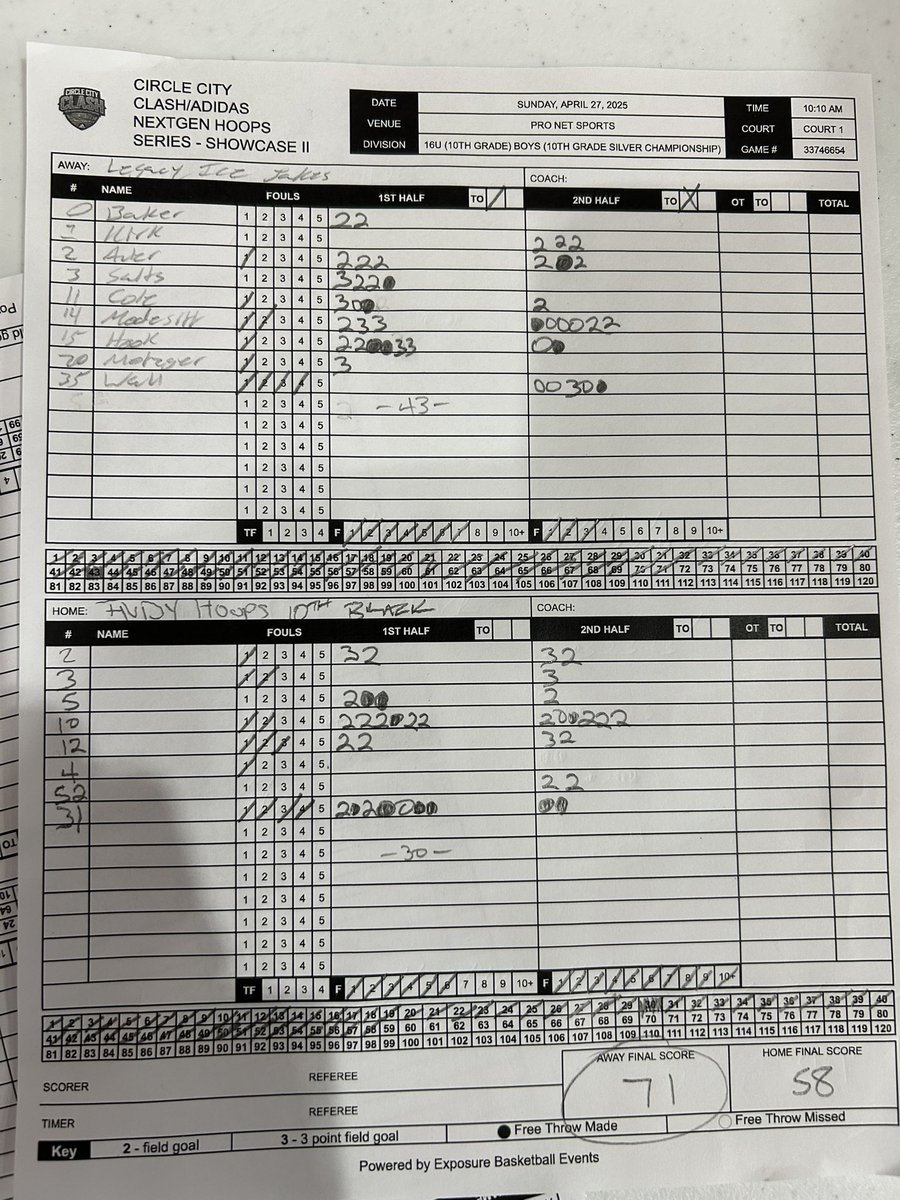 CIRCLE CITY CLASH
CIRCLE CITY
CLASH/ADIDAS
NEXTGEN HOOPS
SERIES - SHOWCASE II
DATE SUNDAY, APRIL 27, 2025 TIME 10:10 AM
VENUE PRO NET SPORTS COURT COURT 1
DIVISION 16U (10TH GRADE) BOYS (10TH GRADE SILVER CHAMPIONSHIP) GAME # 33746654
AWAY: Legacy Ice Jakes COACH:
# NAME FOULS 1ST HALF TO 2ND HALF TO OT TO TOTAL
0 Baker 1 2 3 4 5 22
1 Kirk 1 2 3 4 5 222
2 Aver 1 2 3 4 5 222 2●2
3 Salts 1 2 3 4 5 322●
11 Cole 1 2 3 4 5 30● 2
14 Modesitt 1 2 3 4 5 233 ●00022
15 Hook 1 2 3 4 5 22●●33 0●
20 Metzger 1 2 3 4 5 3
35 Wall 1 2 3 4 5 0030●
1 2 3 4 5 -43-
1 2 3 4 5
1 2 3 4 5
1 2 3 4 5
1 2 3 4 5
1 2 3 4 5
TF 1 2 3 4 F 1 2 3 4 5 6 7 8 9 10+ F 1 2 3 4 5 6 7 8 9 10+
1 2 3 4 5 6 7 8 9 10 11 12 13 14 15 16 17 18 19 20 21 22 23 24 25 26 27 28 29 30 31 32 33 34 35 36 37 38 39 40
41 42 43 44 45 46 47 48 49 50 51 52 53 54 55 56 57 58 59 60 61 62 63 64 65 66 67 68 69 70 71 72 73 74 75 76 77 78 79 80
81 82 83 84 85 86 87 88 89 90 91 92 93 94 95 96 97 98 99 100 101 102 103 104 105 106 107 108 109 110 111 112 113 114 115 116 117 118 119 120
HOME: INDY HOOPS 10TH BLACK COACH:
# NAME FOULS 1ST HALF TO 2ND HALF TO OT TO TOTAL
2 1 2 3 4 5 32 32
3 1 2 3 4 5 3
5 1 2 3 4 5 2●● 2
10 1 2 3 4 5 222●22 20●222
12 1 2 3 4 5 22 32
4 1 2 3 4 5
52 1 2 3 4 5 22
31 1 2 3 4 5 2●2●0●● ●●
1 2 3 4 5
1 2 3 4 5 -30-
1 2 3 4 5
1 2 3 4 5
1 2 3 4 5
1 2 3 4 5
1 2 3 4 5
TF 1 2 3 4 F 1 2 3 4 5 6 7 8 9 10+ F 1 2 3 4 5 6 7 8 9 10+
1 2 3 4 5 6 7 8 9 10 11 12 13 14 15 16 17 18 19 20 21 22 23 24 25 26 27 28 29 30 31 32 33 34 35 36 37 38 39 40
41 42 43 44 45 46 47 48 49 50 51 52 53 54 55 56 57 58 59 60 61 62 63 64 65 66 67 68 69 70 71 72 73 74 75 76 77 78 79 80
81 82 83 84 85 86 87 88 89 90 91 92 93 94 95 96 97 98 99 100 101 102 103 104 105 106 107 108 109 110 111 112 113 114 115 116 117 118 119 120
SCORER REFEREE AWAY FINAL SCORE HOME FINAL SCORE
71 58
TIMER REFEREE
Key 2 - field goal 3 - 3 point field goal Free Throw Made Free Throw Missed
Powered by Exposure Basketball Events